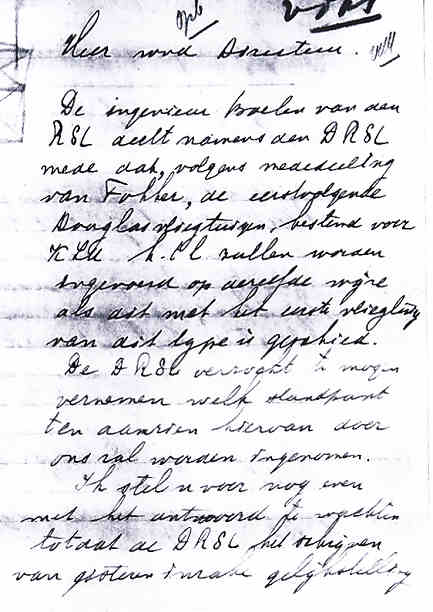 Heer wnd Directeur.
De ingenieur Boelen van den
RSL deelt namens den DRSL
mede dat, volgens mededeeling
van Fokker, de eerstvolgende
Douglasvliegtuigen, bestemd voor
KLM zullen worden
ingevoerd op dezelfde wijze
als dit met het eerste vliegtuig
van dit type is geschied.
De DRSL verzoekt te mogen
vernemen welk standpunt
ten aanzien hiervan door
ons zal worden ingenomen.
Ik stel u voor nog even
met het antwoord te wachten
totdat de DRSL het schrijven
van gisteren inzake gelijkstelling